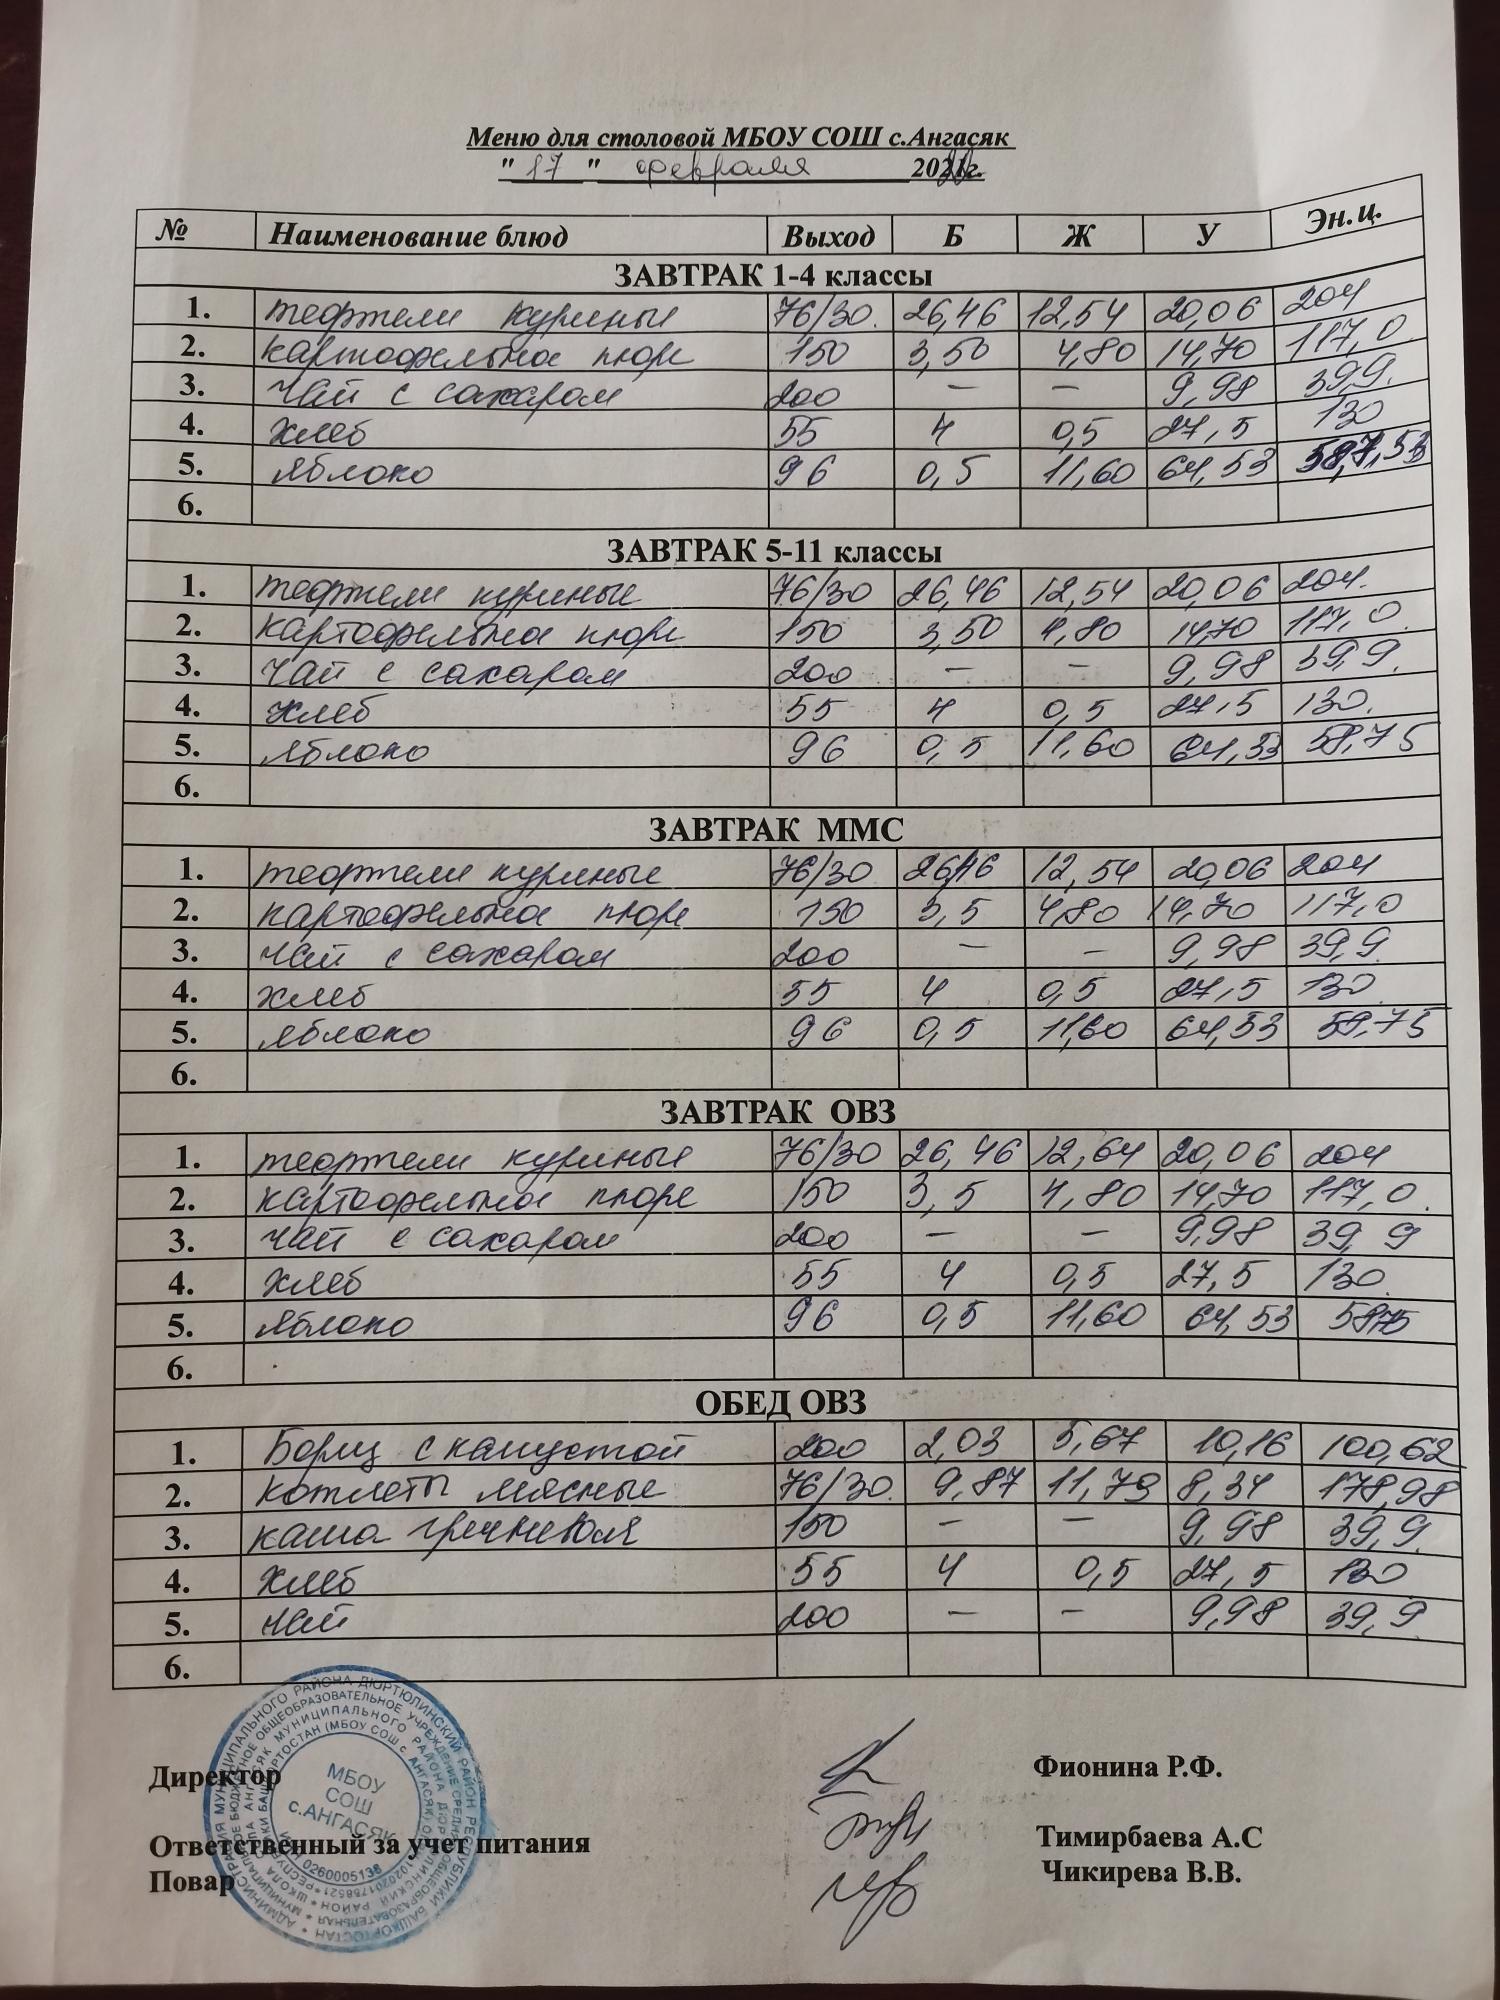 Меню для столовой МБОУ СОШ с.Ангасяк
"17" февраля 2022г.
№ Наименование блюд Выход Б Ж У Эн.ц.
ЗАВТРАК 1-4 классы
1. тефтели куриные 76/30 26,46 12,54 20,06 204
2. картофельное пюре 150 3,50 4,80 14,70 117,0
3. чай с сахаром 200 – – 9,98 39,9
4. хлеб 55 4 0,5 27,5 130
5. яблоко 96 0,5 11,60 64,53
6.
ЗАВТРАК 5-11 классы
1. тефтели куриные 76/30 26,46 12,54 20,06 204
2. картофельное пюре 150 3,50 4,80 14,70 117,0
3. чай с сахаром 200 – – 9,98 39,9
4. хлеб 55 4 0,5 27,5 130
5. яблоко 96 0,5 11,60 64,53 58,75
6.
ЗАВТРАК ММС
1. тефтели куриные 76/30 26,46 12,54 20,06 204
2. картофельное пюре 150 3,5 4,80 14,70 117,0
3. чай с сахаром 200 – – 9,98 39,9
4. хлеб 55 4 0,5 27,5 130
5. яблоко 96 0,5 11,60 64,53 58,75
6.
ЗАВТРАК ОВЗ
1. тефтели куриные 76/30 26,46 12,64 20,06 204
2. картофельное пюре 150 3,5 4,80 14,70 117,0
3. чай с сахаром 200 – – 9,98 39,9
4. хлеб 55 4 0,5 27,5 130
5. яблоко 96 0,5 11,60 64,53 58,75
6.
ОБЕД ОВЗ
1. Борщ с капустой 200 2,03 5,67 10,16 100,62
2. котлеты мясные 76/30 9,87 11,79 8,34 178,98
3. каша гречневая 150 – – 9,98 39,9
4. хлеб 55 4 0,5 27,5 130
5. чай 200 – – 9,98 39,9
6.
Директор Фионина Р.Ф.
Ответственный за учет питания Тимирбаева А.С
Повар Чикирева В.В.
МБОУ
СОШ
с.АНГАСЯК
0260005138